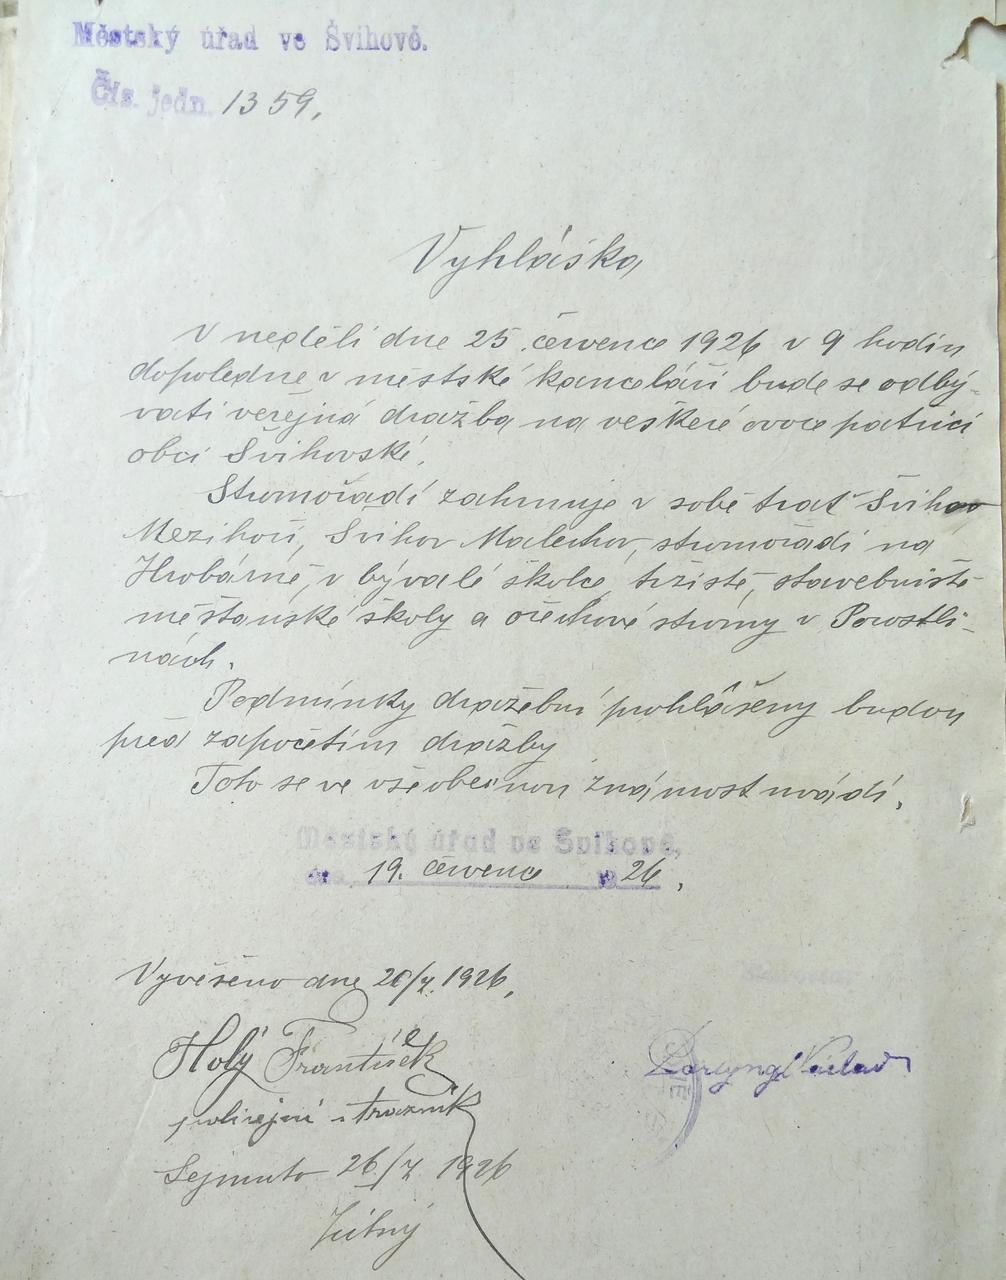 Městský úřad ve Švihově.
Čís. jedn. 1359.
Vyhláška
V neděli dne 25. července 1926 v 9 hodin
dopoledne v městské kanceláři bude se odbý-
vati veřejná dražba na veškeré ovoce patřící
obci Švihovské.
Stromořadí zahrnuje v sobě trať Švihov
Mezihoří, Švihov Malechov, stromořadí na
Hrobárně, v bývalé školce, tržiště, staveniště
měšťanské školy a ořechové stromy v
nách.
Podmínky dražební prohlášeny budou
před započetím dražby
Toto se ve všeobecnou známost uvádí.
Městský úřad ve Švihově,
dne 19. července 1926.
Vyvěšeno dne 20/7. 1926.
Holý František
policejní strážník
Sejmuto 26/7. 1926
Václav